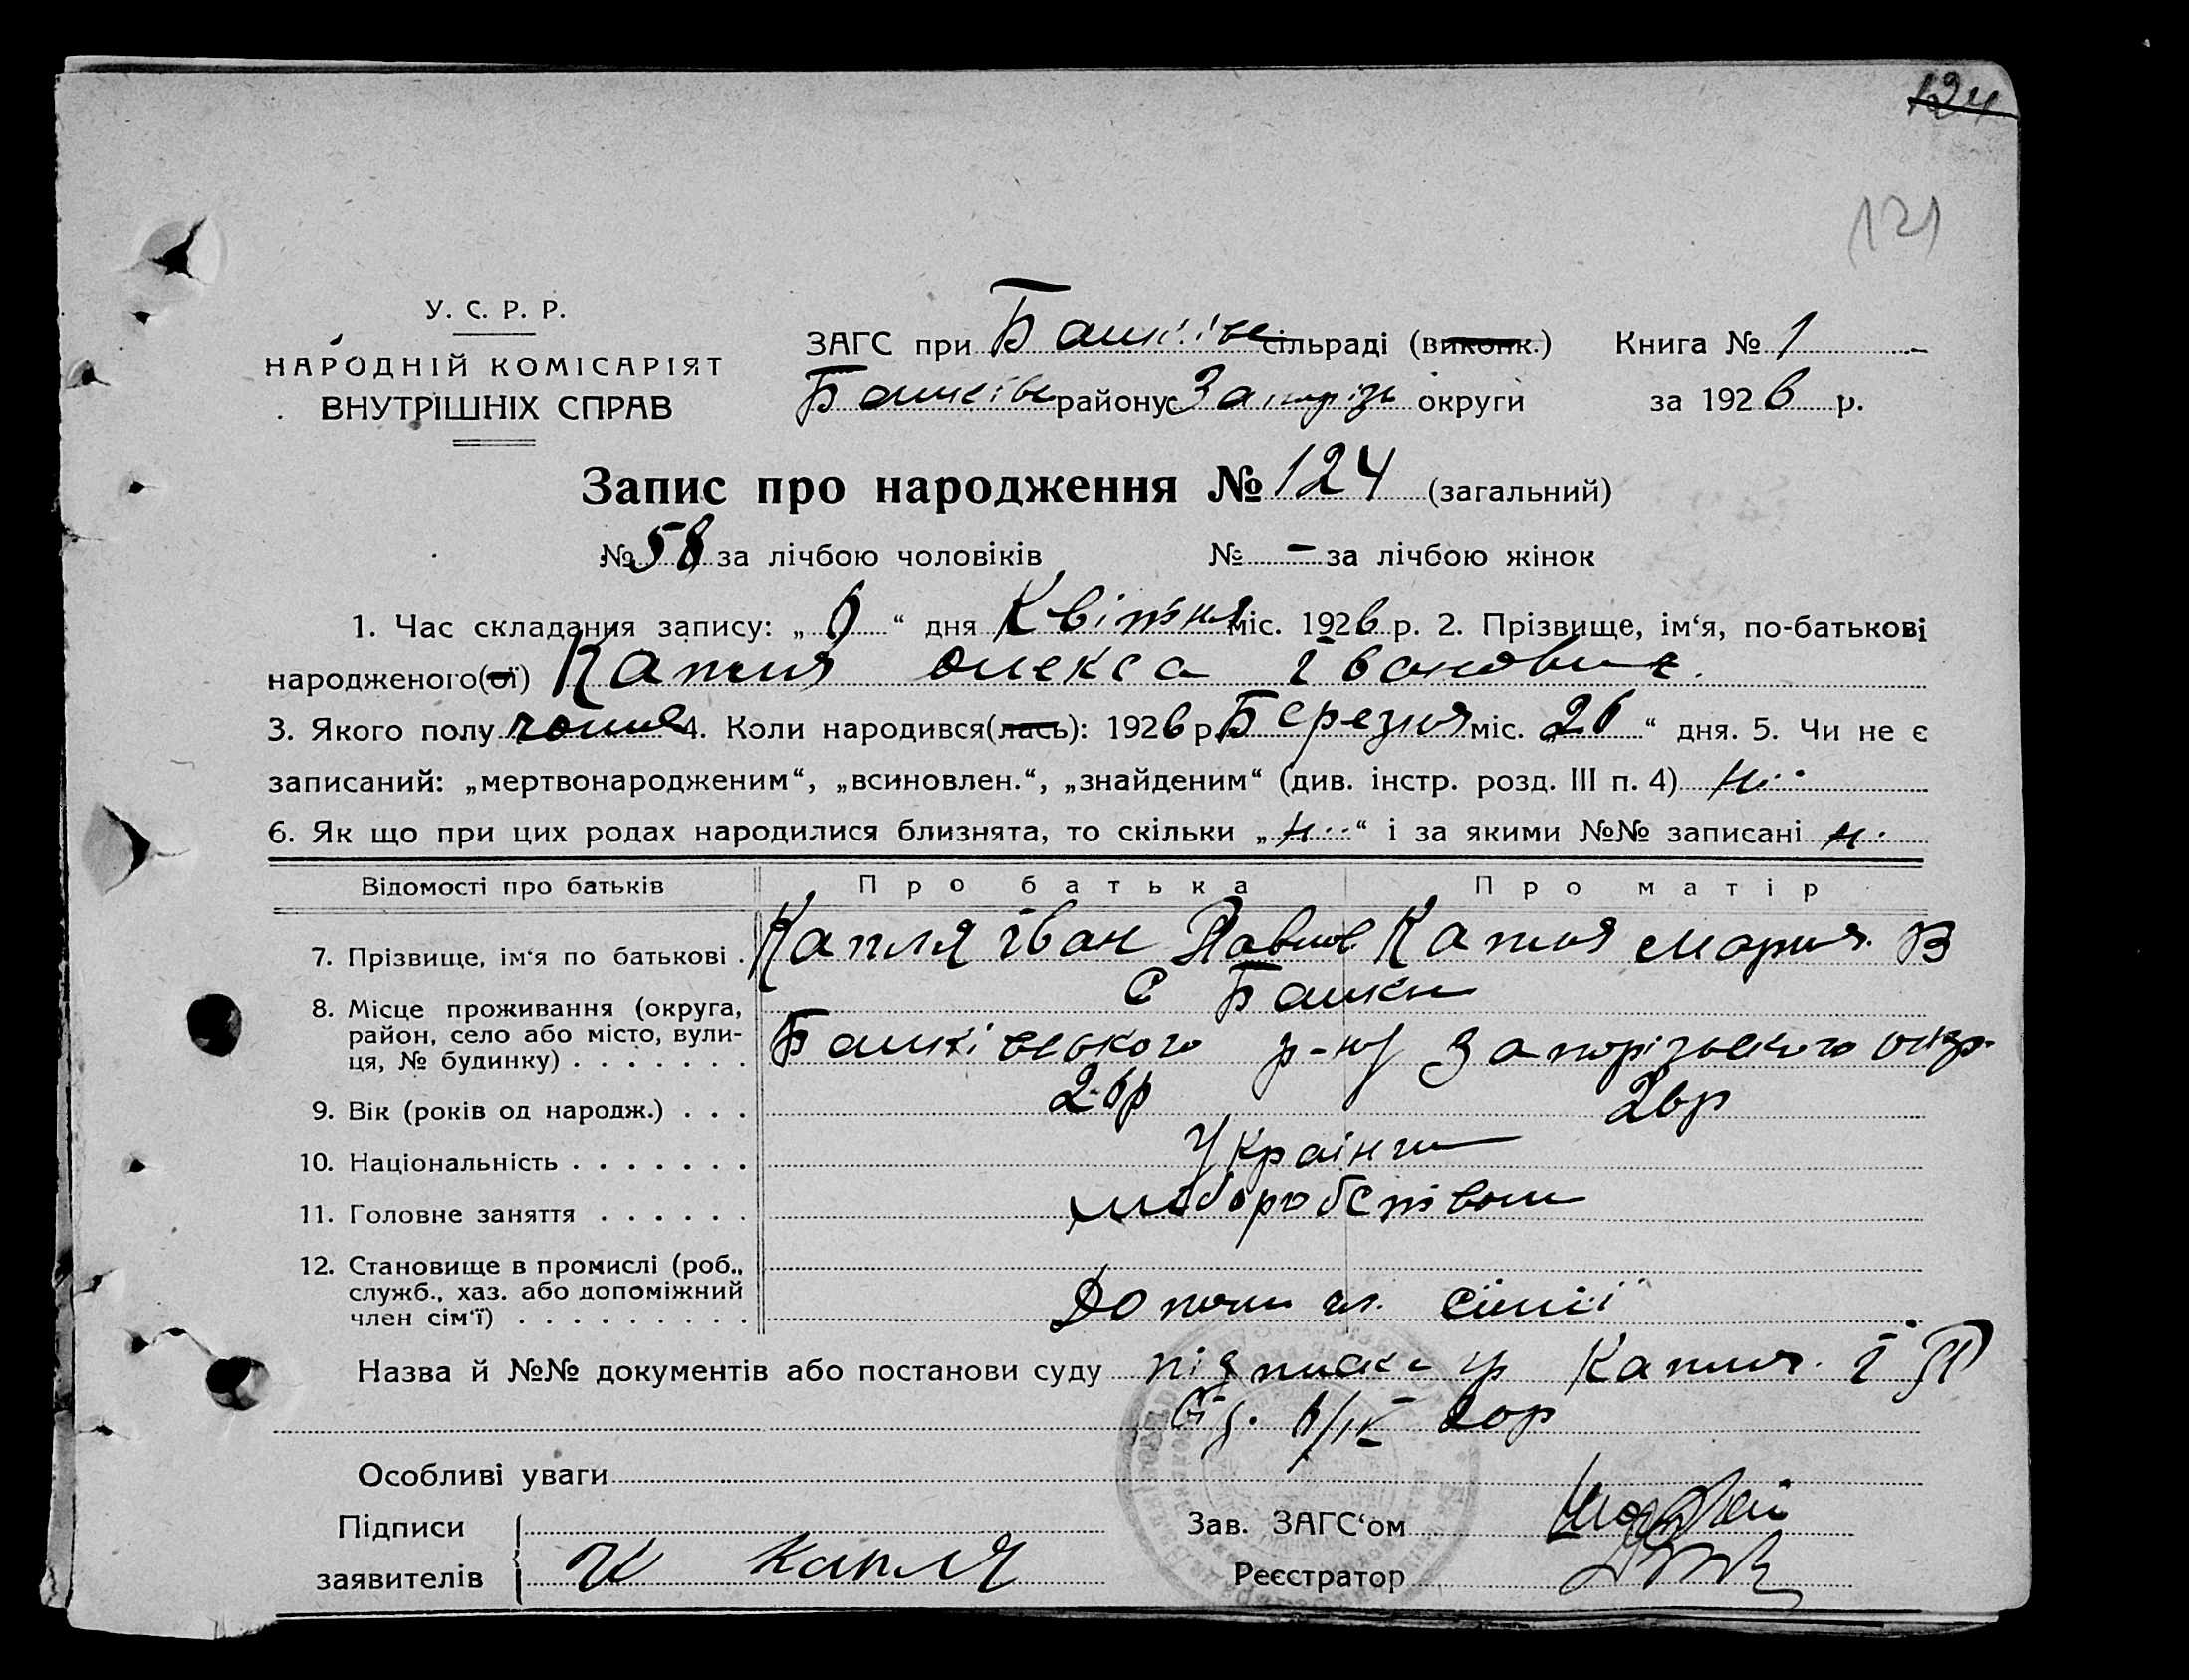 124
121
У. С. Р. Р.
НАРОДНІЙ КОМІСАРІЯТ
ВНУТРІШНІХ СПРАВ
ЗАГС при Балківс сільраді (виконк.) Книга № 1
Балківс району Запоріз округи за 1926 р.
Запис про народження № 124 (загальний)
№ 58 за лічбою чоловіків № - за лічбою жінок
1. Час складання запису: „ 6 “ дня Квітня міс. 1926 р. 2. Прізвище, ім‘я, по-батькові
народженого(ої) Капля Олекса Іванович.
3. Якого полу 4. Коли народився(лась): 1926 р. Березня міс. „ 26 “ дня. 5. Чи не є
записаний: „мертвонародженим“, „всиновлен.“, „знайденим“ (див. інстр. розд. III п. 4) Ні
6. Як що при цих родах народилися близнята, то скільки „ Ні “ і за якими №№ записані Ні
Відомості про батьків Про батька Про матір
7. Прізвище, ім‘я по батькові . Капля Іван Павлов Капля Мария В
8. Місце проживання (округа, район, село або місто, вулиця, № будинку) . . . . . . . с Балки
Балківського р-ну Запорізького окр.
9. Вік (років од народж.) . . . 26р 26р
10. Національність . . . . . . . Українці
11. Головне заняття . . . . . . хліборобством
12. Становище в промислі (роб., служб., хаз. або допоміжний член сім‘ї) . . . . . . . . . Допом чл. сімї
Назва й №№ документів або постанови суду підписка гр Капля І П
від. 6/IV 26р
Особливі уваги
Підписи
заявителів Капля
Зав. ЗАГС‘ом
Реєстратор